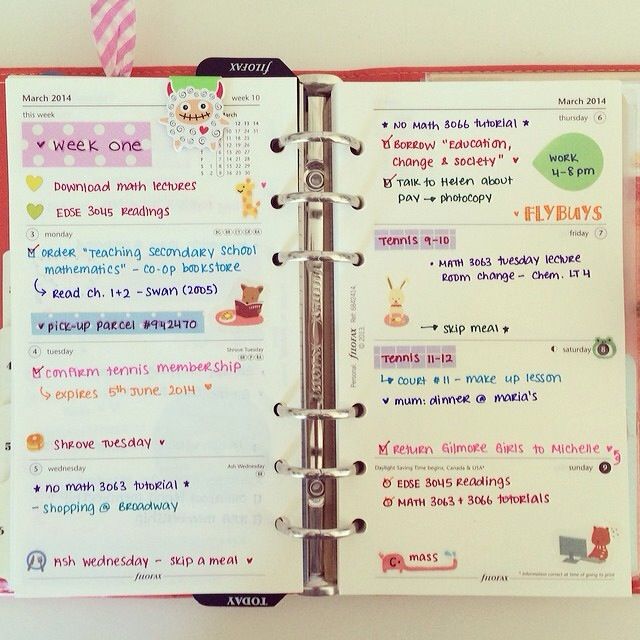 FILOFAX
March 2014
week 10
this week
week one
Download math lectures
EDSE 3045 Readings
3 monday
order "Teaching Secondary School
mathematics" - co-op bookstore
Read ch. 1+2 - Swan (2005)
pick-up parcel #942470
4 tuesday
Shrove Tuesday
confirm tennis membership
expires 5th June 2014
Shrove Tuesday
5 wednesday
Ash Wednesday
* no math 3063 tutorial *
- shopping @ Broadway
Ash Wednesday - skip a meal
filofax
TODAY
March 2014
thursday 6
* No Math 3066 tutorial *
Borrow "Education,
Change & Society"
Talk to Helen about
pay → photocopy
WORK
4-8pm
FLYBUYS
friday 7
Tennis 9-10
• MATH 3063 tuesday lecture
room change - Chem. LT4
→ skip meal *
saturday 8
Tennis 11-12
court #11 - make up lesson
mum: dinner @ maria's
Return Gilmore Girls to Michelle
Daylight Saving Time begins, Canada & USA*
sunday 9
EDSE 3045 Readings
MATH 3063 + 3066 tutorials
mass
filofax
* Information correct at time of going to print
Personal filofax Ref: 6842414
© 2013